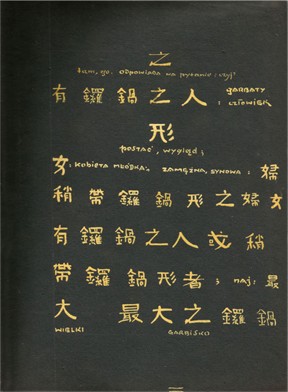 之
tłum. go. odpowiada na pytanie: czyj?
有鑼鍋之人 : GARBATY CZŁOWIEK
形
postać, wygląd;
女: kobieta młódka; zamężna, synowa: 婦
稍帶鑼鍋形之婦女
有鑼鍋之人或稍
帶鑼鍋形者; naj: 最
大 最大之鑼鍋
WIELKI GARBISKO